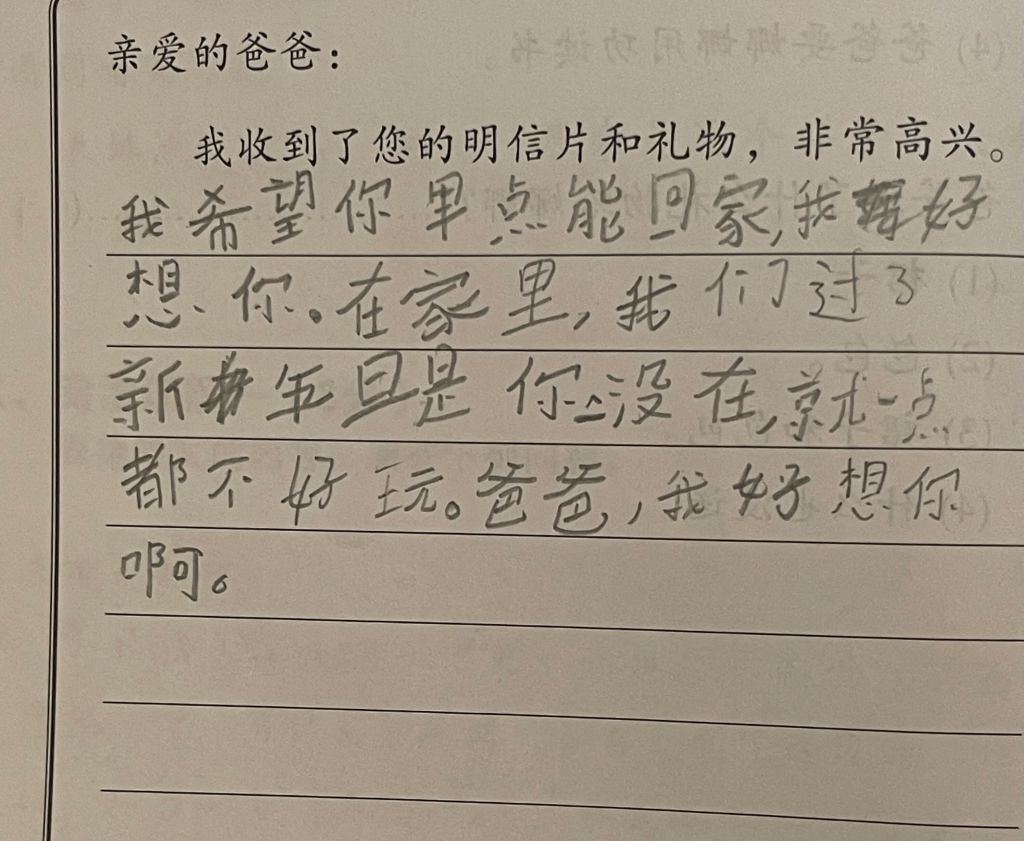 亲爱的爸爸：
我收到了您的明信片和礼物，非常高兴。
我希望你里点能回家,我好
想你。在家里,我们过了
新年旦是你没在,就一点
都不好玩。爸爸,我好想你
啊。